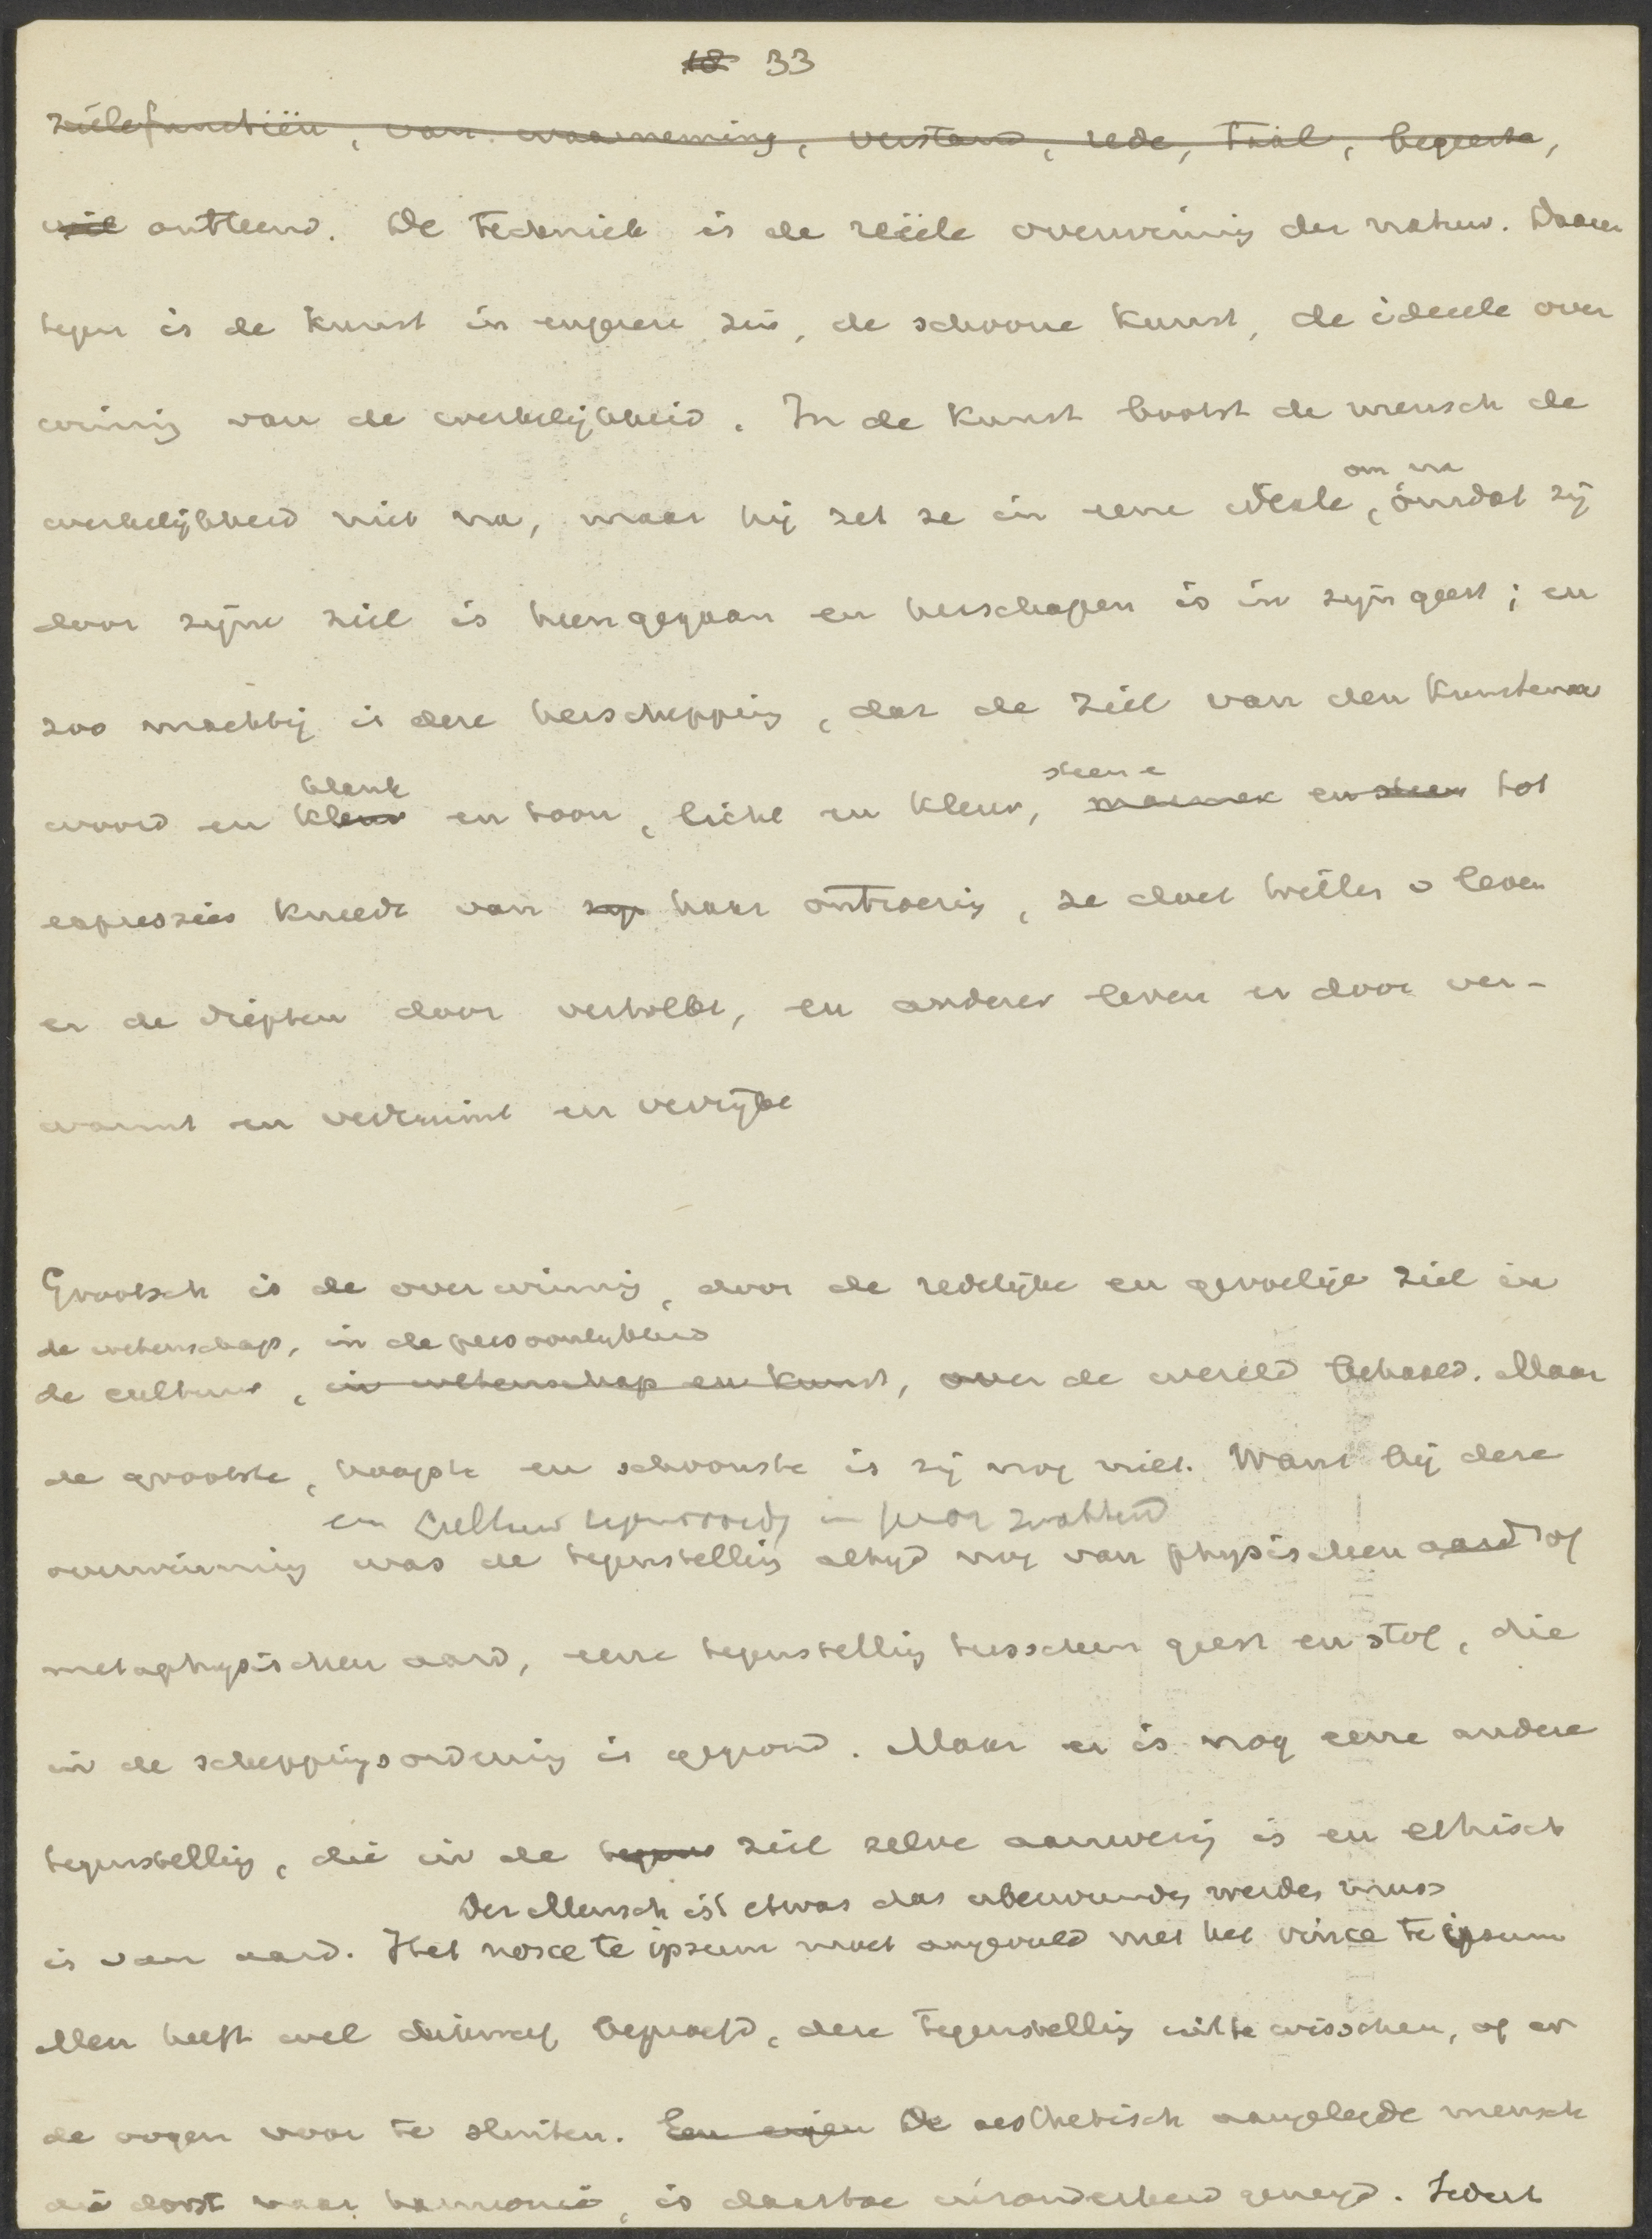 18 33
zielsfunctiën, van waarneming, verstand, rede, taal, begeerte,
wil ontleend. De techniek is de reëele overwinning der natuur. Daaren
tegen is de kunst in engeren zin, de schoone kunst, de ideeele over
winning van de werkelijkheid. In de kunst bootst de mensch de
om na
werkelijkheid niet na, maar hij zet ze in eene ideale, omdat zij
door zijne ziel is heengegaan en herschapen is in zijn geest; en
zoo machtig is deze herschepping, dat de ziel van den kunstenaar
klank steen e
woord en kleur en toon, licht en kleur, marmer en steen tot
expressies kneedt van zijn haar ontroering, ze doet trillen v leven
er de diepten door vertolkt, en anderer leven er door ver-
warmt en verruimt en verrijkt
Grootsch is de overwinning, door de redelijke en gevoelige ziel in
de wetenschap, in de persoonlijkheid
de cultuur, in wetenschap en kunst, over de wereld behaald. Maar
de grootste, hoogste en schoonste is zij nog niet. Want bij deze
en cultuur tegenwoordig in haar zwakheid
overwinning was de tegenstelling altijd nog van physischen aard of
metaphysischen aard, eene tegenstelling tusschen geest en stof, die
in de scheppingsordening is gegrond. Maar er is nog eene andere
tegenstelling, die in de tegens ziel zelve aanwezig is en ethisch
Der Mensch ist etwas das uberwunden werden muss
is van aard. Het nosce te ipsum moet aangevuld met het vince te ipsum
Men heeft wel beproefd, deze tegenstelling uit te wisschen, of er
de oogen voor te sluiten. Een eigen De aesthetisch aangelegde mensch
die dorst naar harmonie, is daartoe inzonderheid geneigd. Zedert